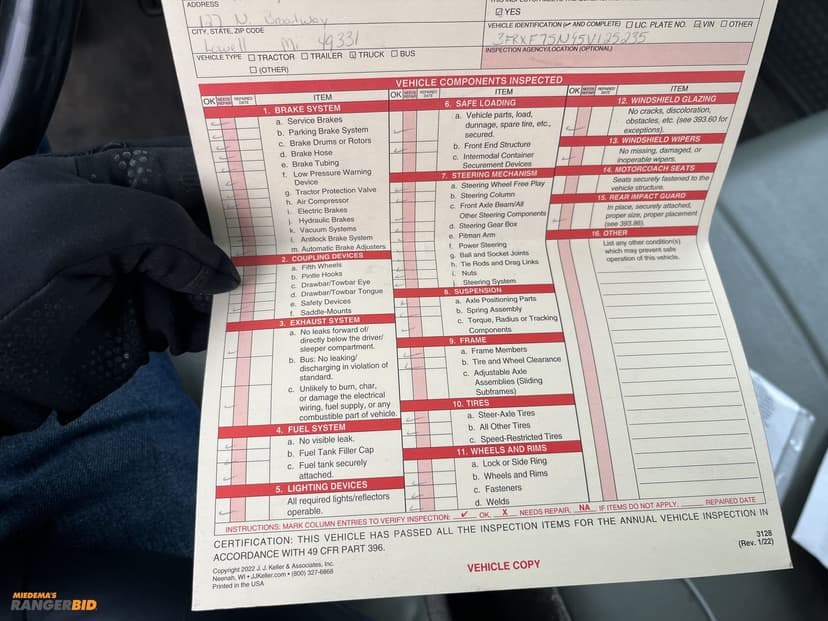 ADDRESS
127 N. Broadway
☑ YES
CITY, STATE, ZIP CODE
Lowell Mi 49331
VEHICLE IDENTIFICATION (✓ AND COMPLETE) ☐ LIC. PLATE NO. ☑ VIN ☐ OTHER
VEHICLE TYPE ☐ TRACTOR ☐ TRAILER ☑ TRUCK ☐ BUS
☐ (OTHER)
INSPECTION AGENCY/LOCATION (OPTIONAL)
VEHICLE COMPONENTS INSPECTED
OK NEEDS REPAIR REPAIRED DATE ITEM
1. BRAKE SYSTEM
a. Service Brakes
b. Parking Brake System
c. Brake Drums or Rotors
d. Brake Hose
e. Brake Tubing
f. Low Pressure Warning
Device
g. Tractor Protection Valve
h. Air Compressor
i. Electric Brakes
j. Hydraulic Brakes
k. Vacuum Systems
l. Antilock Brake System
m. Automatic Brake Adjusters
2. COUPLING DEVICES
a. Fifth Wheels
b. Pintle Hooks
c. Drawbar/Towbar Eye
d. Drawbar/Towbar Tongue
e. Safety Devices
f. Saddle-Mounts
3. EXHAUST SYSTEM
a. No leaks forward of/
directly below the driver/
sleeper compartment.
b. Bus: No leaking/
discharging in violation of
standard.
c. Unlikely to burn, char,
or damage the electrical
wiring, fuel supply, or any
combustible part of vehicle.
4. FUEL SYSTEM
a. No visible leak.
b. Fuel Tank Filler Cap
c. Fuel tank securely
attached.
5. LIGHTING DEVICES
All required lights/reflectors
operable.
OK NEEDS REPAIR REPAIRED DATE ITEM
6. SAFE LOADING
a. Vehicle parts, load,
dunnage, spare tire, etc.,
secured.
b. Front End Structure
c. Intermodal Container
Securement Devices
7. STEERING MECHANISM
a. Steering Wheel Free Play
b. Steering Column
c. Front Axle Beam/All
Other Steering Components
d. Steering Gear Box
e. Pitman Arm
f. Power Steering
g. Ball and Socket Joints
h. Tie Rods and Drag Links
i. Nuts
Steering System
8. SUSPENSION
a. Axle Positioning Parts
b. Spring Assembly
c. Torque, Radius or Tracking
Components
9. FRAME
a. Frame Members
b. Tire and Wheel Clearance
c. Adjustable Axle
Assemblies (Sliding
Subframes)
10. TIRES
a. Steer-Axle Tires
b. All Other Tires
c. Speed-Restricted Tires
11. WHEELS AND RIMS
a. Lock or Side Ring
b. Wheels and Rims
c. Fasteners
d. Welds
OK NEEDS REPAIR REPAIRED DATE ITEM
12. WINDSHIELD GLAZING
No cracks, discoloration,
obstacles, etc. (see 393.60 for
exceptions).
13. WINDSHIELD WIPERS
No missing, damaged, or
inoperable wipers.
14. MOTORCOACH SEATS
Seats securely fastened to the
vehicle structure.
15. REAR IMPACT GUARD
In place, securely attached,
proper size, proper placement
(see 393.86).
16. OTHER
List any other condition(s)
which may prevent safe
operation of this vehicle.
INSTRUCTIONS: MARK COLUMN ENTRIES TO VERIFY INSPECTION: ✓ OK, X NEEDS REPAIR, NA IF ITEMS DO NOT APPLY, REPAIRED DATE
CERTIFICATION: THIS VEHICLE HAS PASSED ALL THE INSPECTION ITEMS FOR THE ANNUAL VEHICLE INSPECTION IN
ACCORDANCE WITH 49 CFR PART 396.
Copyright 2022 J. J. Keller & Associates, Inc.
Neenah, WI • JJKeller.com • (800) 327-6868
Printed in the USA
VEHICLE COPY
3128
(Rev. 1/22)
MIEDEMA'S
RANGERBID